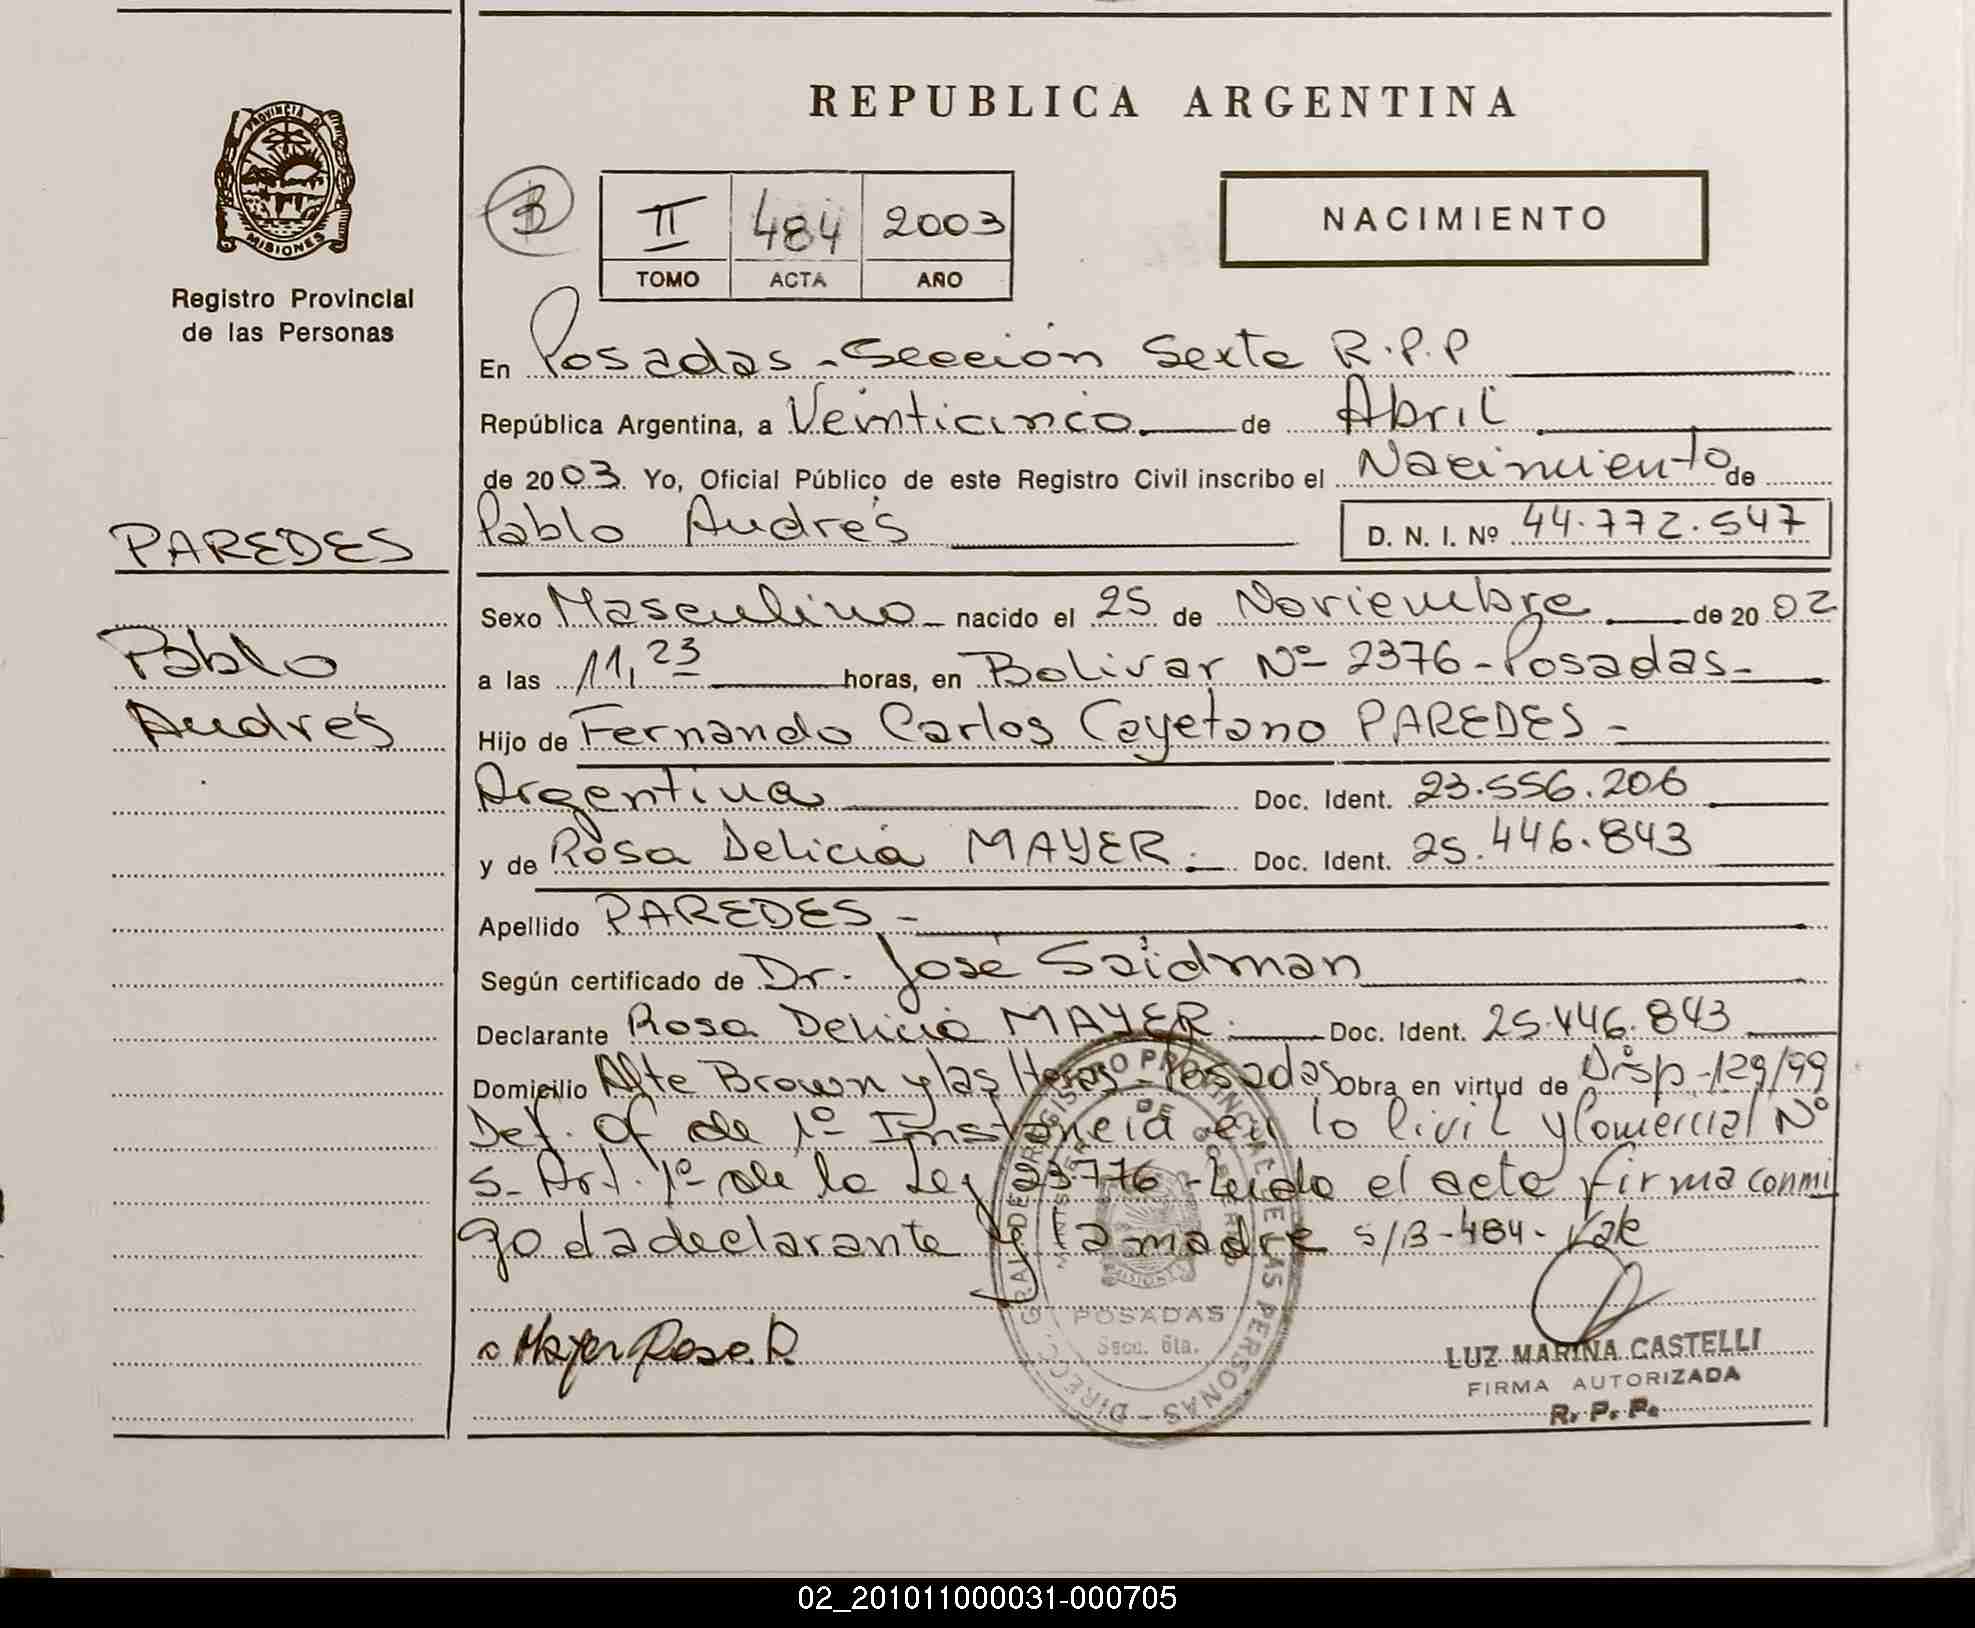 REPUBLICA ARGENTINA
PROVINCIA DE
MISIONES
Registro Provincial
de las Personas
B
II 484 2003
TOMO ACTA AÑO
NACIMIENTO
En Posadas - Sección Sexta R.P.P
República Argentina, a Veinticinco de Abril
de 2003. Yo, Oficial Público de este Registro Civil inscribo el Nacimiento de
Pablo Andrés D. N. I. Nº 44.772.547
PAREDES
Pablo
Andrés
Sexo Masculino nacido el 25 de Noviembre de 2002
a las 11,23 horas, en Bolivar Nº 2376 - Posadas -
Hijo de Fernando Carlos Cayetano PAREDES -
Argentina Doc. Ident. 23.556.206
y de Rosa Delicia MAYER. Doc. Ident. 25.446.843
Apellido PAREDES -
Según certificado de Dr. José Saidman
Declarante Rosa Delicia MAYER. Doc. Ident. 25.446.843
Domicilio Alte Brown y las Heras - Posadas Obra en virtud de Disp - 129/99
Def. Of de 1º Instancia en lo Civil y Comercial Nº
5 - Art. 1º de la Ley 23.776 - Leida el acta firma conmi
go la declarante y la madre s/B - 484 - Vale
Mayer Rosa D.
DIRECC. GRAL. DE REGISTRO PROVINCIAL DE LAS PERSONAS
MISIONES
POSADAS
Secc. 6ta.
LUZ MARINA CASTELLI
FIRMA AUTORIZADA
R. P. P.
02_201011000031-000705